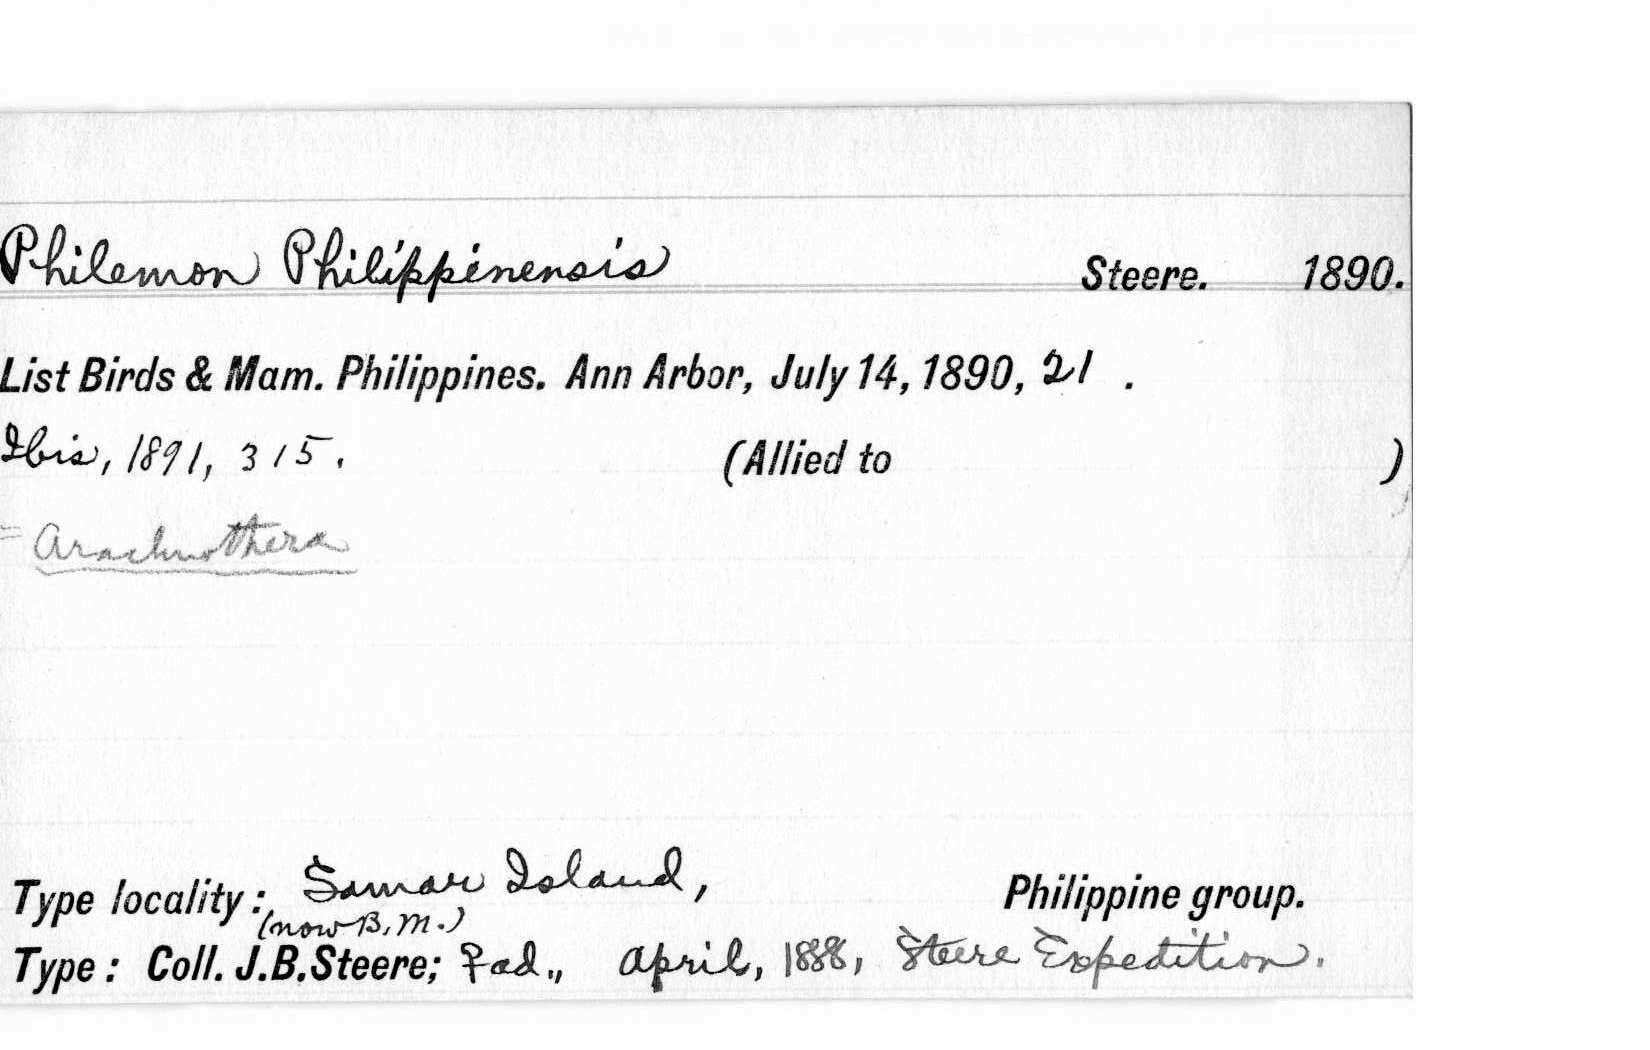 Philemon Philippinensis Steere. 1890.
List Birds & Mam. Philippines. Ann Arbor, July 14, 1890, 21 .
Ibis, 1891, 315. (Allied to )
= Arachnothera
Type locality: Samar Island, Philippine group.
(now B.M.)
Type: Coll. J.B.Steere; ♀ ad., April, 1888, Steere Expedition.